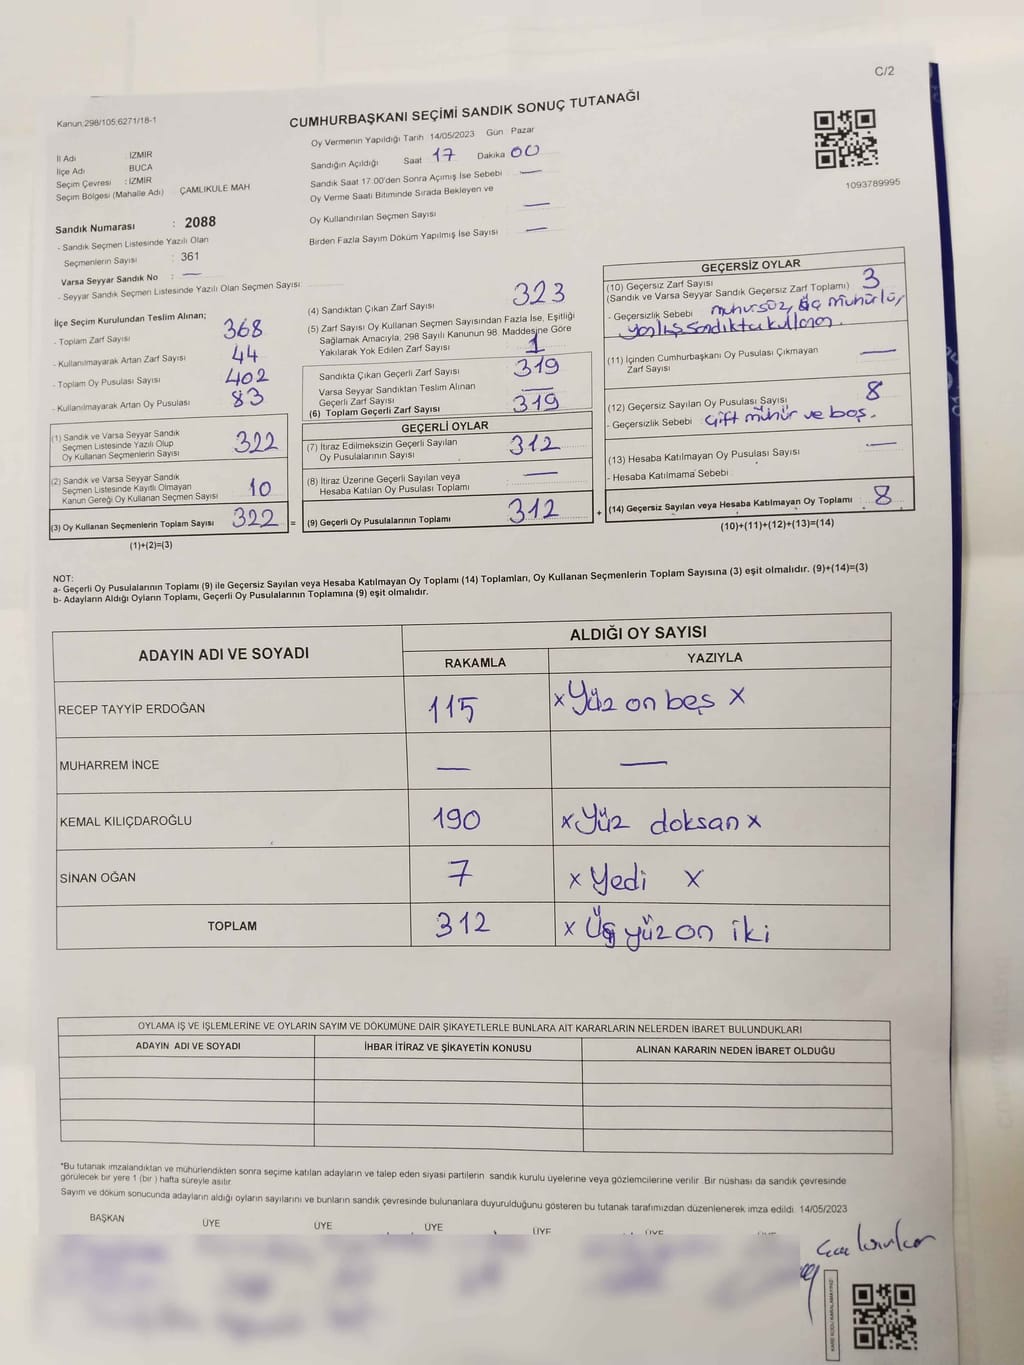 C/2
Kanun,298/105,6271/18-1
CUMHURBAŞKANI SEÇİMİ SANDIK SONUÇ TUTANAĞI
1093789995
İl Adı : İZMİR
İlçe Adı BUCA
Seçim Çevresi : İZMİR
Seçim Bölgesi (Mahalle Adı) ÇAMLIKULE MAH
Sandık Numarası : 2088
- Sandık Seçmen Listesinde Yazılı Olan
Seçmenlerin Sayısı : 361
Varsa Seyyar Sandık No : —
- Seyyar Sandık Seçmen Listesinde Yazılı Olan Seçmen Sayısı:
Oy Vermenin Yapıldığı Tarih 14/05/2023 Gün Pazar
Sandığın Açıldığı Saat 17 Dakika 00
Sandık Saat 17:00'den Sonra Açımış İse Sebebi —
Oy Verme Saati Bitiminde Sırada Bekleyen ve
Oy Kullandırılan Seçmen Sayısı —
Birden Fazla Sayım Döküm Yapılmış İse Sayısı —
İlçe Seçim Kurulundan Teslim Alınan;
- Toplam Zarf Sayısı 368
- Kullanılmayarak Artan Zarf Sayısı 44
- Toplam Oy Pusulası Sayısı 402
- Kullanılmayarak Artan Oy Pusulası 83
(1) Sandık ve Varsa Seyyar Sandık
Seçmen Listesinde Yazılı Olup
Oy Kullanan Seçmenlerin Sayısı 322
(2) Sandık ve Varsa Seyyar Sandık
Seçmen Listesinde Kayıtlı Olmayan
Kanun Gereği Oy Kullanan Seçmen Sayısı 10
(3) Oy Kullanan Seçmenlerin Toplam Sayısı 322 =
(1)+(2)=(3)
(4) Sandıktan Çıkan Zarf Sayısı 323
(5) Zarf Sayısı Oy Kullanan Seçmen Sayısından Fazla İse, Eşitliği
Sağlamak Amacıyla, 298 Sayılı Kanunun 98. Maddesine Göre
Yakılarak Yok Edilen Zarf Sayısı 1
Sandıkta Çıkan Geçerli Zarf Sayısı 319
Varsa Seyyar Sandıktan Teslim Alınan
Geçerli Zarf Sayısı —
(6) Toplam Geçerli Zarf Sayısı 319
GEÇERLİ OYLAR
(7) İtiraz Edilmeksizin Geçerli Sayılan
Oy Pusulalarının Sayısı 312
(8) İtiraz Üzerine Geçerli Sayılan veya
Hesaba Katılan Oy Pusulası Toplamı —
(9) Geçerli Oy Pusulalarının Toplamı 312 +
GEÇERSİZ OYLAR
(10) Geçersiz Zarf Sayısı
(Sandık ve Varsa Seyyar Sandık Geçersiz Zarf Toplamı) 3
- Geçersizlik Sebebi mühürsüz, üç mühürlü,
yanlış sandıkta kullanan.
(11) İçinden Cumhurbaşkanı Oy Pusulası Çıkmayan
Zarf Sayısı —
(12) Geçersiz Sayılan Oy Pusulası Sayısı 8
- Geçersizlik Sebebi Çift mühür ve boş.
(13) Hesaba Katılmayan Oy Pusulası Sayısı —
- Hesaba Katılmama Sebebi
(14) Geçersiz Sayılan veya Hesaba Katılmayan Oy Toplamı : 8
(10)+(11)+(12)+(13)=(14)
NOT:
a- Geçerli Oy Pusulalarının Toplamı (9) ile Geçersiz Sayılan veya Hesaba Katılmayan Oy Toplamı (14) Toplamları, Oy Kullanan Seçmenlerin Toplam Sayısına (3) eşit olmalıdır. (9)+(14)=(3)
b- Adayların Aldığı Oyların Toplamı, Geçerli Oy Pusulalarının Toplamına (9) eşit olmalıdır.
ADAYIN ADI VE SOYADI
ALDIĞI OY SAYISI
RAKAMLA YAZIYLA
RECEP TAYYİP ERDOĞAN 115 x Yüz on beş x
MUHARREM İNCE — —
KEMAL KILIÇDAROĞLU 190 x Yüz doksan x
SİNAN OĞAN 7 x Yedi x
TOPLAM 312 x Üç yüz on iki
OYLAMA İŞ VE İŞLEMLERİNE VE OYLARIN SAYIM VE DÖKÜMÜNE DAİR ŞİKAYETLERLE BUNLARA AİT KARARLARIN NELERDEN İBARET BULUNDUKLARI
ADAYIN ADI VE SOYADI İHBAR İTİRAZ VE ŞİKAYETİN KONUSU ALINAN KARARIN NEDEN İBARET OLDUĞU
*Bu tutanak imzalandıktan ve mühürlendikten sonra seçime katılan adayların ve talep eden siyasi partilerin sandık kurulu üyelerine veya gözlemcilerine verilir. Bir nüshası da sandık çevresinde
görülecek bir yere 1 (bir ) hafta süreyle asılır.
Sayım ve döküm sonucunda adayların aldığı oyların sayılarını ve bunların sandık çevresinde bulunanlara duyurulduğunu gösteren bu tutanak tarafımızdan düzenlenerek imza edildi. 14/05/2023
BAŞKAN ÜYE ÜYE ÜYE ÜYE ÜYE